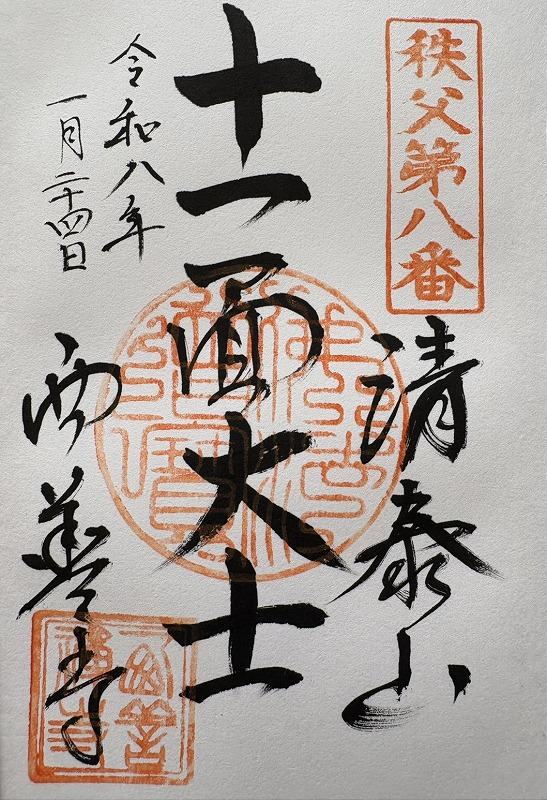 秩父第八番
清泰山
十一面大士
西善寺
令和八年
一月二十四日